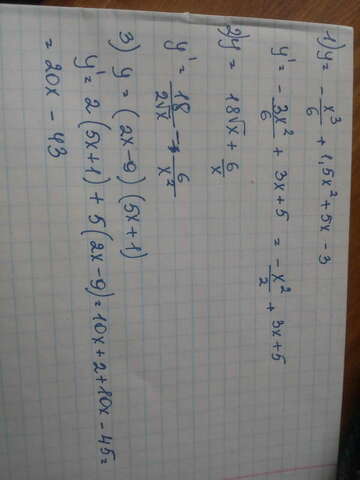 1) y = - x³/6 + 1,5x² + 5x - 3
y' = - 3x²/6 + 3x + 5 = - x²/2 + 3x + 5
2) y = 18√x + 6/x
y' = 18/2√x - 6/x²
3) y = (2x-9) (5x+1)
y' = 2 (5x+1) + 5(2x-9) = 10x + 2 + 10x - 45 =
= 20x - 43